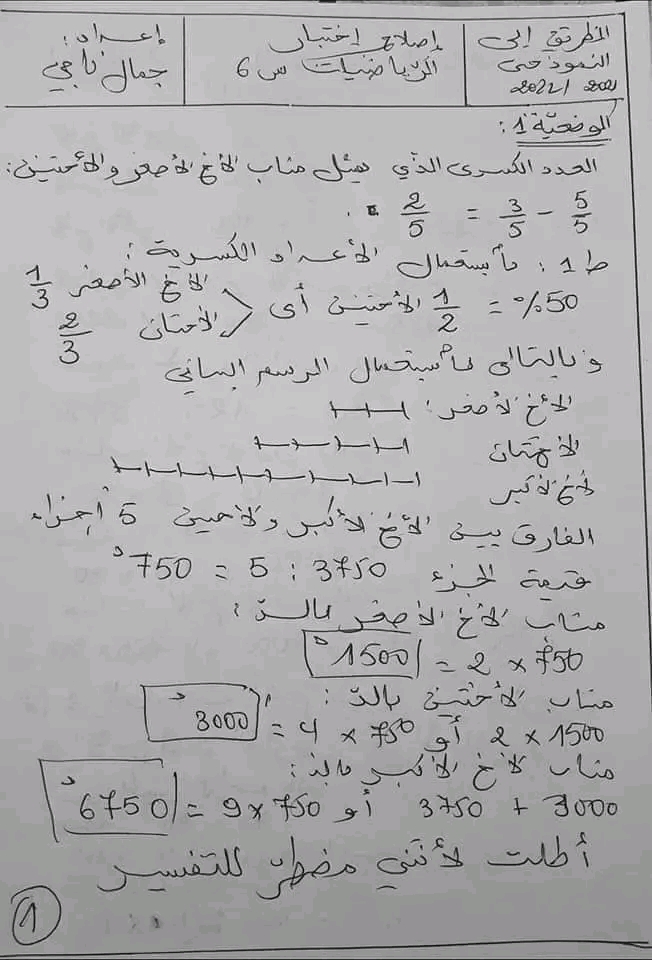 الطريق إلى
النموذجي
2021/2022
إصلاح إختبار
الرياضيات س 6
إعداد:
جمال ناجي
الوضعيّة 1:
العدد الكسري الذي يمثل مناب الأخ الأصغر والأختين:
5/5 - 3/5 = 2/5 .
ط 1: بإستعمال الأعداد الكسرية:
50% = 1/2 الأختين أي الأخ الأصغر 1/3
الأختان 2/3
وبالتالي بإستعمال الرسم البياني
الأخ الأصغر:
الأختان
الأخ الأكبر
الفارق بين الأخ الأكبر والأختين 5 أجزاء
قيمة الجزء 3750 : 5 = 750 د
مناب الأخ الأصغر بالدّ:
750 × 2 = 1500 د
مناب الأختين بالدّ:
1500 × 2 أو 750 × 4 = 3000 د
مناب الأخ الأكبر بالد:
3000 + 3750 أو 750 × 9 = 6750 د
أطلت لأنني مضطرّ للتفسير
1